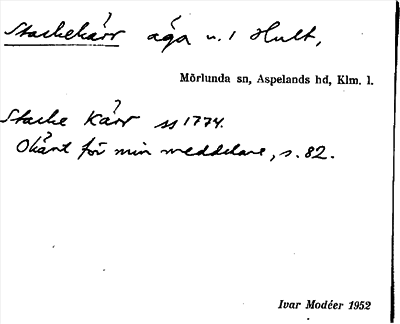 Stackekärr äga n. 1 Hult,
Mörlunda sn, Aspelands hd, Klm. l.
Stacke Kärr ss 1774.
Okänt för min meddelare, s. 82.
Ivar Modéer 1952